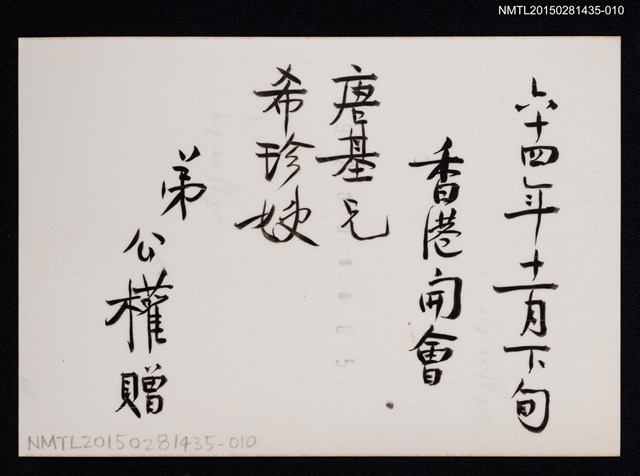 NMTL20150281435-010
六十四年十一月下旬
香港開會
唐基兄
希珍嫂
弟
公權贈
NMTL20150281435-010